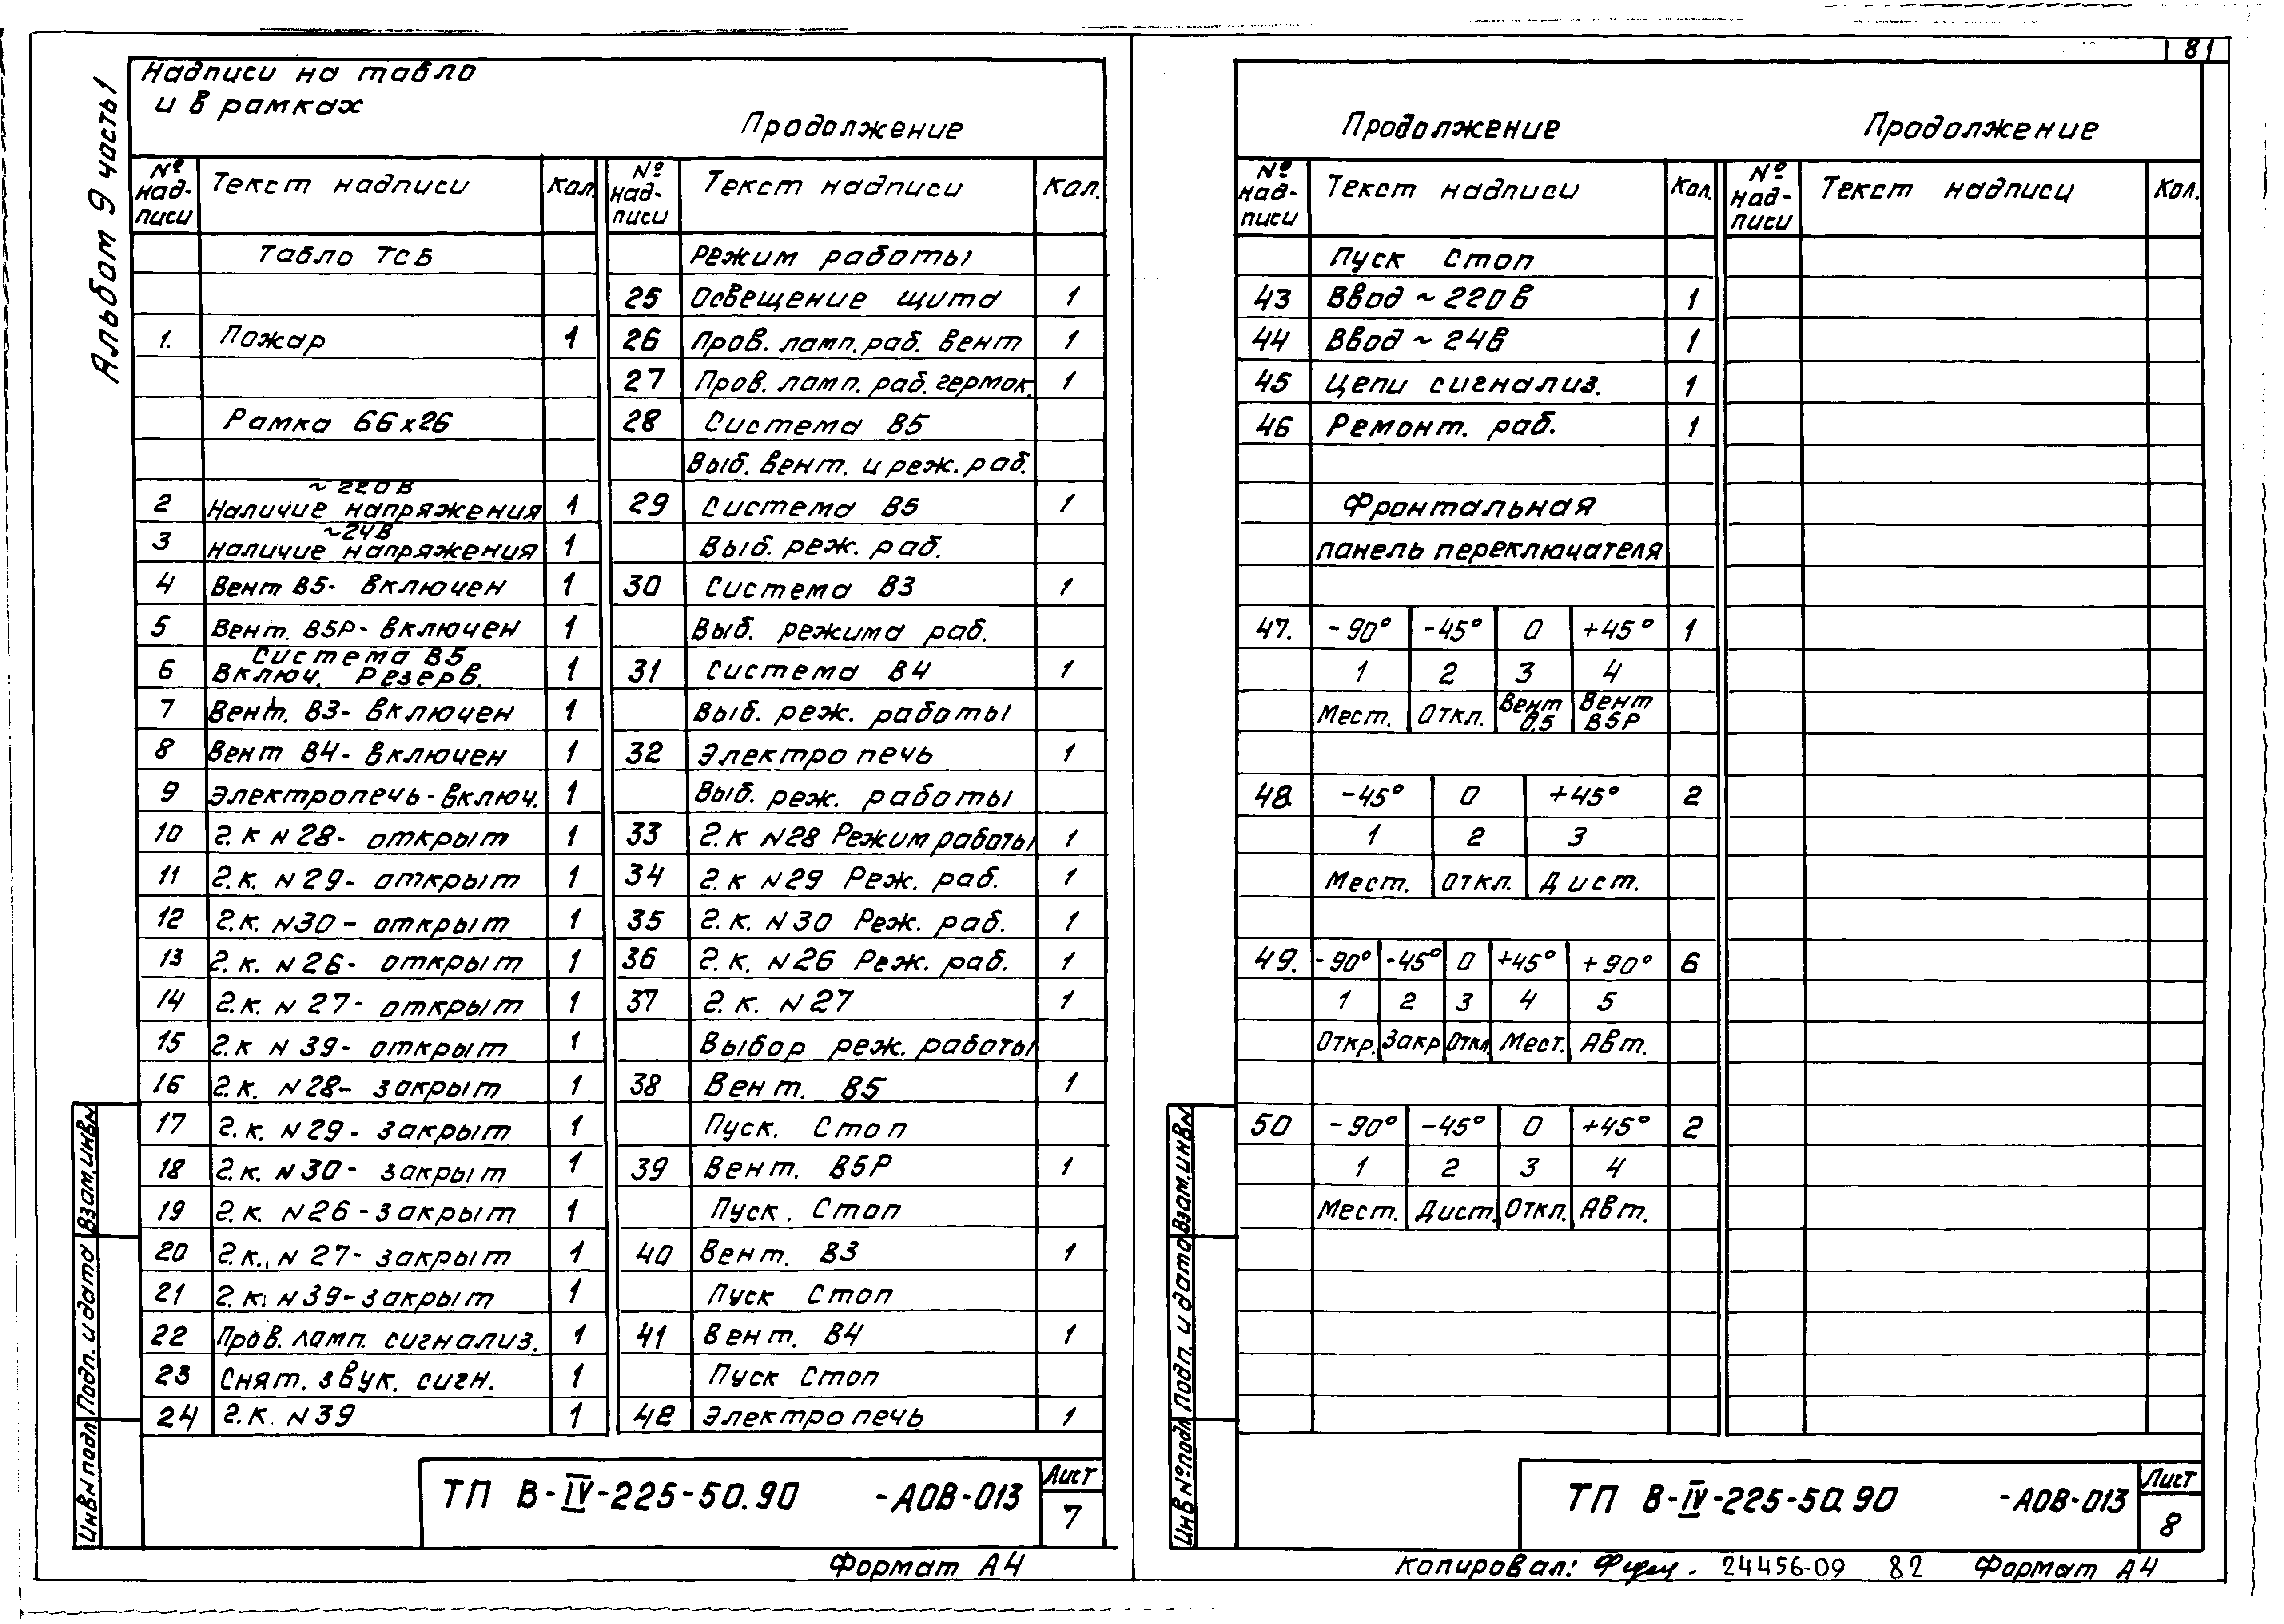 81
Альбом 9 часть 1
Надписи на табло
и в рамках
Продолжение
№ надписи Текст надписи Кол. № надписи Текст надписи Кол.
Табло ТСБ Режим работы
25 Освещение щита 1
1. Пожар 1 26 Пров. ламп. раб. вент 1
27 Пров. ламп. раб. гермок. 1
Рамка 66х26 28 Система В5
Выб. вент. и реж. раб.
2 ~220В Наличие напряжения 1 29 Система В5 1
3 ~24В Наличие напряжения 1 Выб. реж. раб.
4 Вент В5- включен 1 30 Система В3 1
5 Вент. В5Р- включен 1 Выб. режима раб.
6 Система В5 Включ. Резерв. 1 31 Система В4 1
7 Вент. В3- включен 1 Выб. реж. работы
8 Вент В4- включен 1 32 Электропечь 1
9 Электропечь-включ. 1 Выб. реж. работы
10 г.к N28- открыт 1 33 г.к N28 Режим работы 1
11 г.к. N29- открыт 1 34 г.к N29 Реж. раб. 1
12 г.к. N30- открыт 1 35 г.к. N30 Реж. раб. 1
13 г.к. N26- открыт 1 36 г.к. N26 Реж. раб. 1
14 г.к. N27- открыт 1 37 г.к. N27 1
15 г.к N39- открыт 1 Выбор реж. работы
16 г.к. N28- закрыт 1 38 Вент. В5 1
17 г.к. N29- закрыт 1 Пуск. Стоп
18 г.к. N30- закрыт 1 39 Вент. В5Р 1
19 г.к. N26-закрыт 1 Пуск. Стоп
20 г.к. N27- закрыт 1 40 Вент. В3 1
21 г.к. N39-закрыт 1 Пуск Стоп
22 Пров. ламп. сигнализ. 1 41 Вент. В4 1
23 Снят. звук. сигн. 1 Пуск Стоп
24 г.к. N39 1 42 Электропечь 1
Инв N подл. Подп. и дата Взам. инв N
ТП В-IV-225-50.90 -АОВ-013
Лист
7
Формат А4
Продолжение Продолжение
№ надписи Текст надписи Кол. № надписи Текст надписи Кол.
Пуск Стоп
43 Ввод ~220В 1
44 Ввод ~24В 1
45 Цепи сигнализ. 1
46 Ремонт. раб. 1
Фронтальная
панель переключателя
47. -90° -45° 0 +45° 1
1 2 3 4
Мест. Откл. Вент В5 Вент В5Р
48. -45° 0 +45° 2
1 2 3
Мест. Откл. Дист.
49. -90° -45° 0 +45° +90° 6
1 2 3 4 5
Откр. Закр Откл Мест. Авт.
50 -90° -45° 0 +45° 2
1 2 3 4
Мест. Дист. Откл. Авт.
Инв № подл Подп. и дата Взам. инв N
ТП В-IV-225-50.90 -АОВ-013
Лист
8
Копировал: 24456-09 82 Формат А4